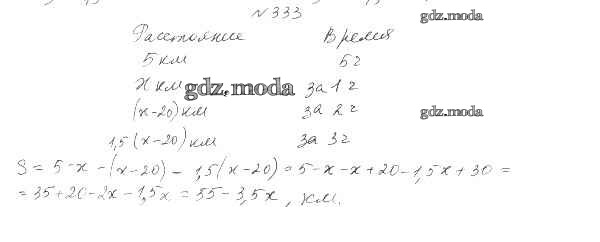 №333
gdz.moda
Расстояние Время
5 км 5 ч
x км gdz.moda за 1 ч
(x-20) км за 2 ч gdz.moda
1,5 (x-20) км за 3 ч
S = 5-x-(x-20) - 1,5(x-20) = 5-x-x+20-1,5x+30 =
= 35+20-2x-1,5x = 55-3,5x, км.